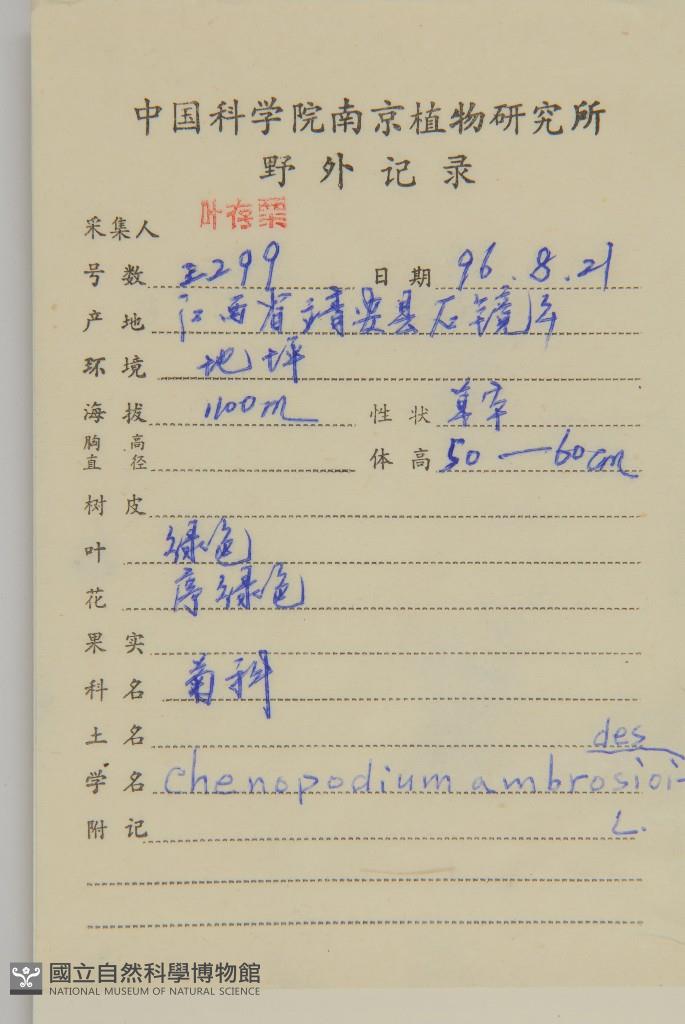 中国科学院南京植物研究所
野外记录
采集人 叶存粟
号数 三299 日期 96.8.21
产地 江西省靖安县石镜
环境 地坪
海拔 1100m 性状 草本
胸高直径 体高 50—60cm
树皮
叶 绿色
花 序绿色
果实
科名 菊科
土名
des
学名 Chenopodium ambrosioi-
附记 L.
國立自然科學博物館
NATIONAL MUSEUM OF NATURAL SCIENCE